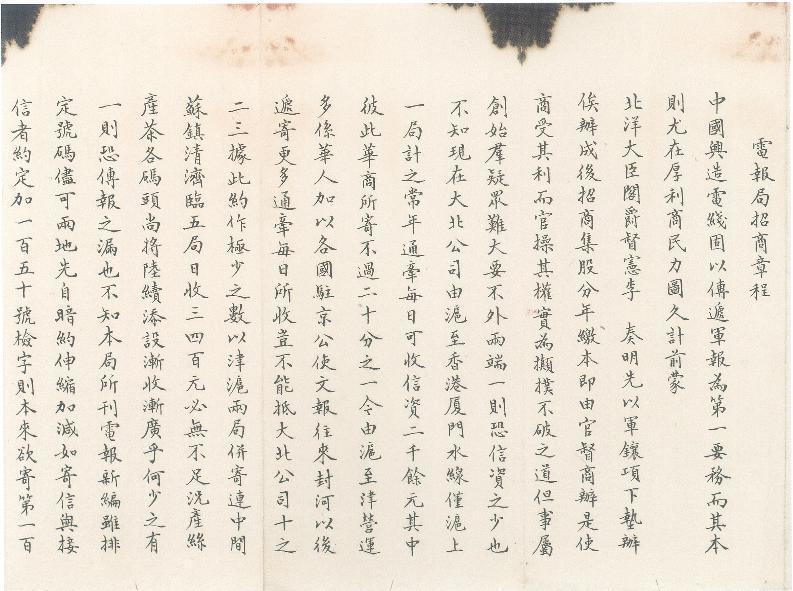 電報局招商章程
中國興造電綫固以傳遞軍報為第一要務而其本
則尤在厚利商民力圖久計前蒙
北洋大臣閣爵督憲李 奏明先以軍饟項下墊辦
俟辦成後招商集股分年繳本即由官督商辦是使
商受其利而官操其權實為擷撲不破之道但事屬
創始羣疑眾難大要不外兩端一則恐信資之少也
不知現在大北公司由滬至香港厦門水線僅滬上
一局計之常年通牽每日可收信資二千餘元其中
彼此華商所寄不過二十分之一今由滬至津營運
多係華人加以各國駐京公使文報往來封河以後
遞寄更多通牽每日所收豈不能抵大北公司十之
二三據此約作極少之數以津滬兩局併寄連中間
蘇鎮清濟臨五局日收三四百元必無不足況產絲
產茶各碼頭尚將陸續添設漸收漸廣乎何少之有
一則恐傳報之漏也不知本局所刊電報新編雖排
定號碼儘可兩地先自暗約伸縮加減如寄信與接
信者約定加一百五十號檢字則本來欲寄第一百